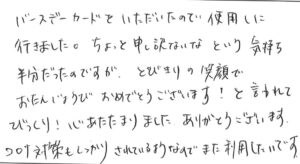 バースデーカードをいただいたので使用しに
行きました。ちょっと申し訳ないな という 気持ち
半分だったのですが、とびきりの笑顔で
おたんじょうび おめでとうございます！と言われて
びっくり！心あたたまりました ありがとうございます。
コロナ対策もしっかり されているようなのでまた利用したいです